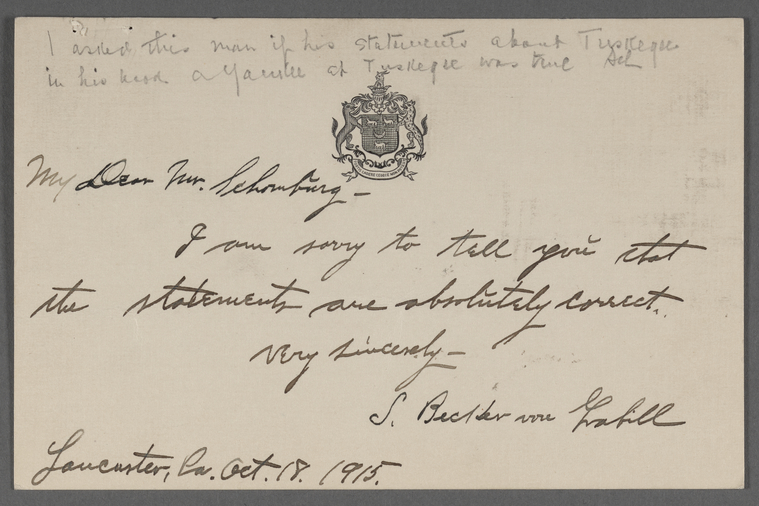 I asked this man if his statements about Tuskegee
in his book A Yankee at Tuskegee was true
My Dear Mr. Schomburg—
I am sorry to tell you that
the statements are absolutely correct.
Very sincerely—
S. Becker von Grabill
Lancaster, Pa. Oct. 18. 1915.